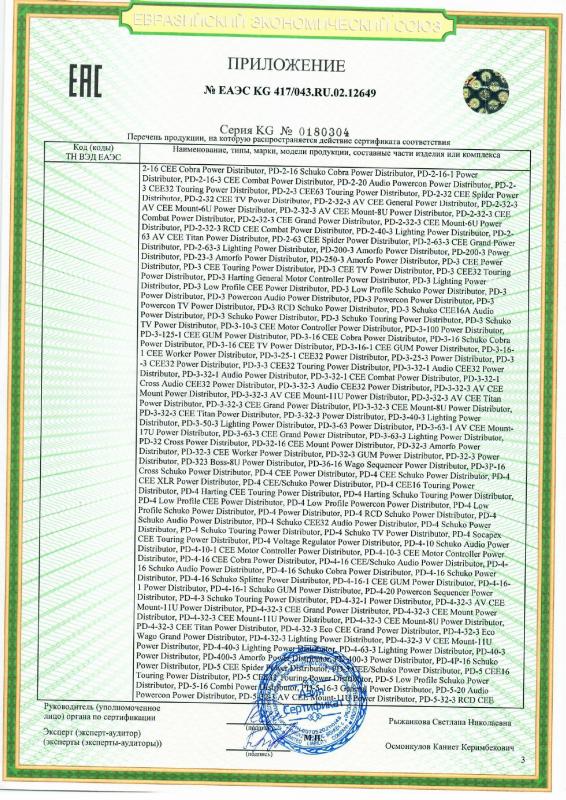 ЕВРАЗИЙСКИЙ ЭКОНОМИЧЕСКИЙ СОЮЗ
EAC
ПРИЛОЖЕНИЕ
№ ЕАЭС KG 417/043.RU.02.12649
Серия KG № 0180304
Перечень продукции, на которую распространяется действие сертификата соответствия
Код (коды)
ТН ВЭД ЕАЭС
Наименование, типы, марки, модели продукции, составные части изделия или комплекса
2-16 CEE Cobra Power Distributor, PD-2-16 Schuko Cobra Power Distributor, PD-2-16-1 Power
Distributor, PD-2-16-3 CEE Combat Power Distributor, PD-2-20 Audio Powercon Power Distributor, PD-2-
3 CEE32 Touring Power Distributor, PD-2-3 CEE63 Touring Power Distributor, PD-2-32 CEE Spider Power
Distributor, PD-2-32 CEE TV Power Distributor, PD-2-32-3 AV CEE General Power Distributor, PD-2-32-3
AV CEE Mount-6U Power Distributor, PD-2-32-3 AV CEE Mount-8U Power Distributor, PD-2-32-3 CEE
Combat Power Distributor, PD-2-32-3 CEE Grand Power Distributor, PD-2-32-3 CEE Mount-6U Power
Distributor, PD-2-32-3 RCD CEE Combat Power Distributor, PD-2-40-3 Lighting Power Distributor, PD-2-
63 AV CEE Titan Power Distributor, PD-2-63 CEE Spider Power Distributor, PD-2-63-3 CEE Grand Power
Distributor, PD-2-63-3 Lighting Power Distributor, PD-200-3 Amorfo Power Distributor, PD-200-3 Power
Distributor, PD-23-3 Amorfo Power Distributor, PD-250-3 Amorfo Power Distributor, PD-3 CEE Power
Distributor, PD-3 CEE Touring Power Distributor, PD-3 CEE TV Power Distributor, PD-3 CEE32 Touring
Power Distributor, PD-3 Harting General Motor Controller Power Distributor, PD-3 Lighting Power
Distributor, PD-3 Low Profile CEE Power Distributor, PD-3 Low Profile Schuko Power Distributor, PD-3
Power Distributor, PD-3 Powercon Audio Power Distributor, PD-3 Powercon Power Distributor, PD-3
Powercon TV Power Distributor, PD-3 RCD Schuko Power Distributor, PD-3 Schuko CEE16A Audio
Power Distributor, PD-3 Schuko Power Distributor, PD-3 Schuko Touring Power Distributor, PD-3 Schuko
TV Power Distributor, PD-3-10-3 CEE Motor Controller Power Distributor, PD-3-100 Power Distributor,
PD-3-125-1 CEE GUM Power Distributor, PD-3-16 CEE Cobra Power Distributor, PD-3-16 Schuko Cobra
Power Distributor, PD-3-16 CEE TV Power Distributor, PD-3-16-1 CEE GUM Power Distributor, PD-3-16-
1 CEE Worker Power Distributor, PD-3-25-1 CEE32 Power Distributor, PD-3-25-3 Power Distributor, PD-3
-3 CEE32 Power Distributor, PD-3-3 CEE32 Touring Power Distributor, PD-3-32-1 Audio CEE32 Power
Distributor, PD-3-32-1 Audio Power Distributor, PD-3-32-1 CEE Combat Power Distributor, PD-3-32-1
Cross Audio CEE32 Power Distributor, PD-3-32-3 Audio CEE32 Power Distributor, PD-3-32-3 AV CEE
Mount Power Distributor, PD-3-32-3 AV CEE Mount-11U Power Distributor, PD-3-32-3 AV CEE Titan
Power Distributor, PD-3-32-3 CEE Grand Power Distributor, PD-3-32-3 CEE Mount-8U Power Distributor,
PD-3-32-3 CEE Titan Power Distributor, PD-3-32-3 Power Distributor, PD-3-40-3 Lighting Power
Distributor, PD-3-50-3 Lighting Power Distributor, PD-3-63 Power Distributor, PD-3-63-1 AV CEE Mount-
17U Power Distributor, PD-3-63-3 CEE Grand Power Distributor, PD-3-63-3 Lighting Power Distributor,
PD-32 Cross Power Distributor, PD-32-16 CEE Mount Power Distributor, PD-32-3 Amorfo Power
Distributor, PD-32-3 CEE Worker Power Distributor, PD-32-3 GUM Power Distributor, PD-32-3 Power
Distributor, PD-323 Boss-8U Power Distributor, PD-36-16 Wago Sequencer Power Distributor, PD-3P-16
Cross Schuko Power Distributor, PD-4 CEE Power Distributor, PD-4 CEE Schuko Power Distributor, PD-4
CEE XLR Power Distributor, PD-4 CEE/Schuko Power Distributor, PD-4 CEE16 Touring Power
Distributor, PD-4 Harting CEE Touring Power Distributor, PD-4 Harting Schuko Touring Power Distributor,
PD-4 Low Profile CEE Power Distributor, PD-4 Low Profile Powercon Power Distributor, PD-4 Low
Profile Schuko Power Distributor, PD-4 Power Distributor, PD-4 RCD Schuko Power Distributor, PD-4
Schuko Audio Power Distributor, PD-4 Schuko CEE32 Audio Power Distributor, PD-4 Schuko Power
Distributor, PD-4 Schuko Touring Power Distributor, PD-4 Schuko TV Power Distributor, PD-4 Socapex
CEE Touring Power Distributor, PD-4 Voltage Regulator Power Distributor, PD-4-10 Schuko Audio Power
Distributor, PD-4-10-1 CEE Motor Controller Power Distributor, PD-4-10-3 CEE Motor Controller Power
Distributor, PD-4-16 CEE Cobra Power Distributor, PD-4-16 CEE/Schuko Audio Power Distributor, PD-4-
16 Schuko Audio Power Distributor, PD-4-16 Schuko Cobra Power Distributor, PD-4-16 Schuko Power
Distributor, PD-4-16 Schuko Splitter Power Distributor, PD-4-16-1 CEE GUM Power Distributor, PD-4-16-
1 Power Distributor, PD-4-16-1 Schuko GUM Power Distributor, PD-4-20 Powercon Sequencer Power
Distributor, PD-4-3 Schuko Touring Power Distributor, PD-4-32-1 Power Distributor, PD-4-32-3 AV CEE
Mount-11U Power Distributor, PD-4-32-3 CEE Grand Power Distributor, PD-4-32-3 CEE Mount Power
Distributor, PD-4-32-3 CEE Mount-11U Power Distributor, PD-4-32-3 CEE Mount-8U Power Distributor,
PD-4-32-3 CEE Titan Power Distributor, PD-4-32-3 Eco CEE Grand Power Distributor, PD-4-32-3 Eco
Wago Grand Power Distributor, PD-4-32-3 Lighting Power Distributor, PD-4-32-3 V CEE Mount-11U
Power Distributor, PD-4-40-3 Lighting Power Distributor, PD-4-63-3 Lighting Power Distributor, PD-40-3
Power Distributor, PD-400-3 Amorfo Power Distributor, PD-400-3 Power Distributor, PD-4P-16 Schuko
Power Distributor, PD-5 CEE Spider Power Distributor, PD-5 CEE/Schuko Power Distributor, PD-5 CEE16
Touring Power Distributor, PD-5 CEE32 Touring Power Distributor, PD-5 Low Profile Schuko Power
Distributor, PD-5-16 Combi Power Distributor, PD-5-16-3 General Power Distributor, PD-5-20 Audio
Powercon Power Distributor, PD-5-32-3 AV CEE Mount-11U Power Distributor, PD-5-32-3 RCD CEE
Руководитель (уполномоченное
лицо) органа по сертификации
(подпись)
Рыжаникова Светлана Николаевна
Эксперт (эксперт-аудитор)
(эксперты (эксперты-аудиторы))
М.П.
(подпись)
Осмонкулов Каниет Керимбекович
Сертификат
3